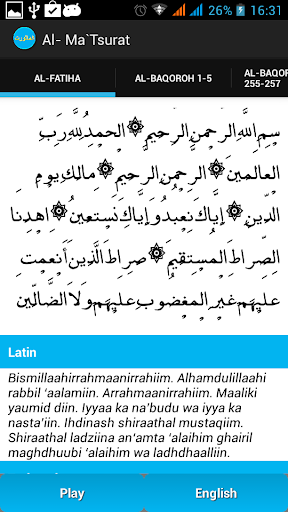 26% 16:31
Al- Ma`Tsurat
AL-FATIHA AL-BAQOROH 1-5 AL-BAQOR
255-257
بِسْمِ اللَّهِ الرَّحْمنِ الرَّحِيمِ الْحَمْدُ لِلَّهِ رَبِّ
الْعَالَمِينَ الرَّحْمنِ الرَّحِيمِ مَالِكِ يَوْمِ
الدِّينِ إِيَّاكَ نَعْبُدُ وَإِيَّاكَ نَسْتَعِينُ اِهْدِنَا
الصِّرَاطَ الْمُسْتَقِيمَ صِرَاطَ الَّذِينَ أَنْعَمْتَ
عَلَيْهِمْ غَيْرِ الْمَغْضُوبِ عَلَيْهِمْ وَلَا الضَّالِّينَ
Latin
Bismillaahirrahmaanirrahiim. Alhamdulillaahi
rabbil ‘aalamiin. Arrahmaanirrahiim. Maaliki
yaumid diin. Iyyaa ka na’budu wa iyya ka
nasta’iin. Ihdinash shiraathal mustaqiim.
Shiraathal ladziina an‘amta ‘alaihim ghairil
maghdhuubi ‘alaihim wa ladhdhaalliin.
Play English